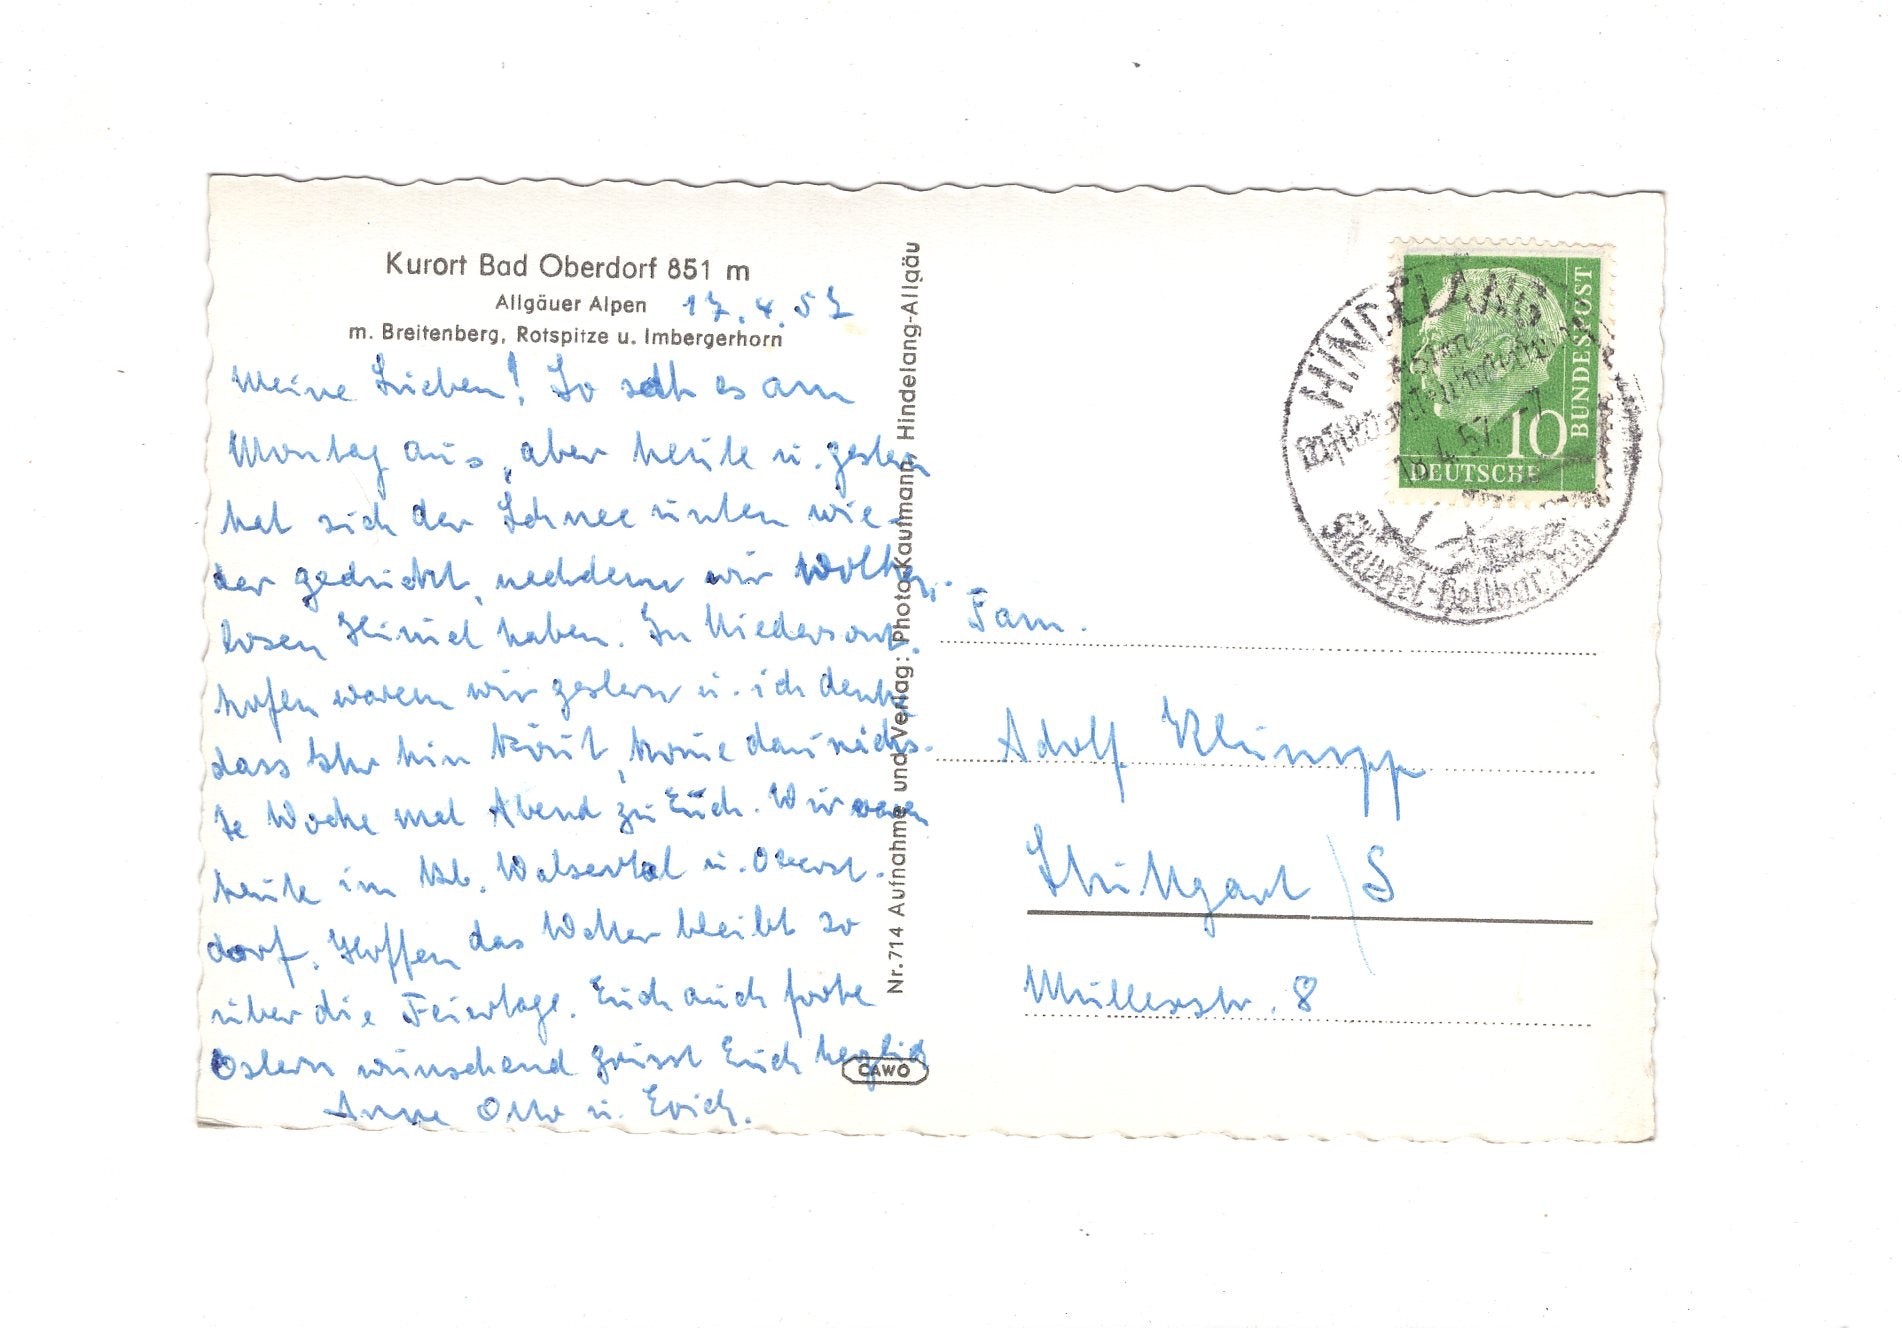 Kurort Bad Oberdorf 851 m
Allgäuer Alpen
17.4.57
m. Breitenberg, Rotspitze u. Imbergerhorn
Meine Lieben! So sah es am
Montag aus, aber heute u. gestern
hat sich der Schnee unten wie-
der gedrückt, nachdem wir wolken-
losen Himmel haben. In Niedersont-
hofen waren wir gestern u. ich denke
dass Ihr hin könnt, komme dann nächs-
te Woche mal Abend zu Euch. Wir waren
heute im Kl. Walsertal u. Oberst-
dorf. Hoffen das Wetter bleibt so
über die Feiertage. Euch auch frohe
Ostern wünschend grüsst Euch herzlich
Anne Otto u. Erich.
Nr. 714 Aufnahme und Verlag: Photo-Kaufmann, Hindelang-Allgäu
CAWO
HINDELANG
18.4.57.
Schwefel-Heilbad
10
DEUTSCHE
BUNDESPOST
Fam.
Adolf Klumpp
Stuttgart / S
Müllerstr. 8